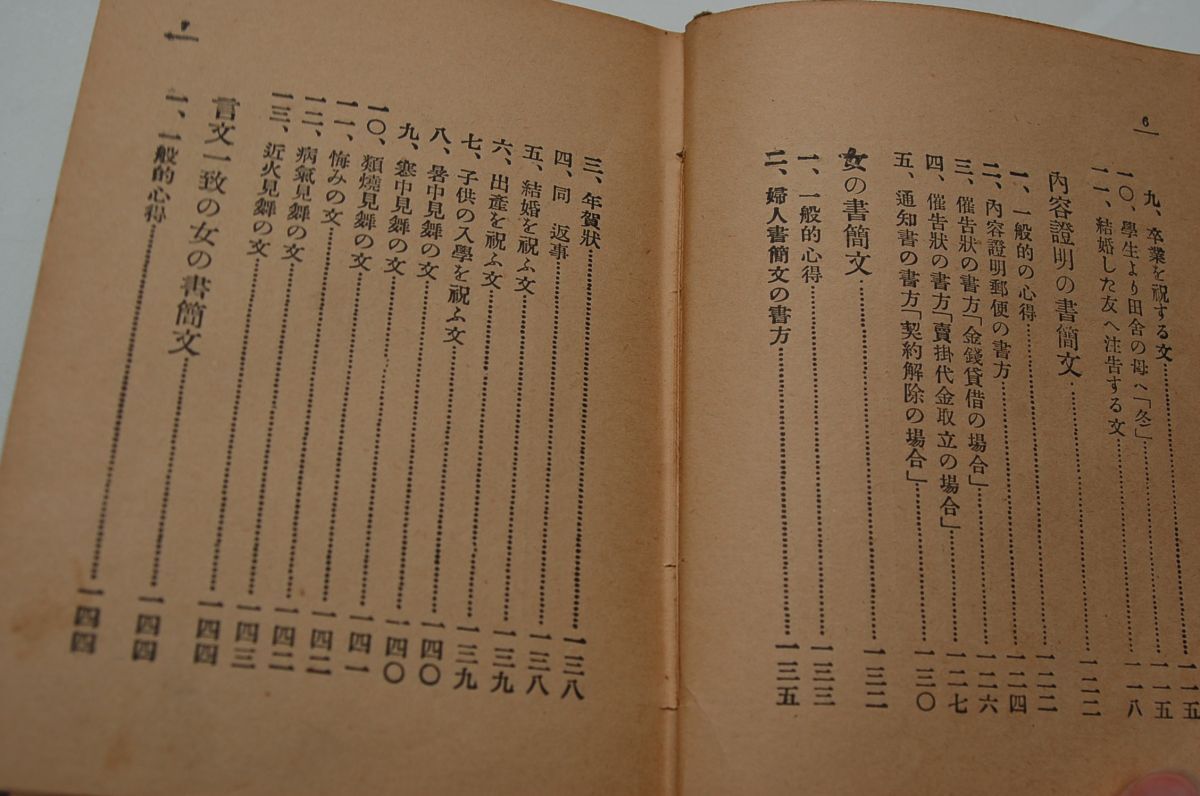 6
九、卒業を祝する文……一一五
一〇、學生より田舎の母へ「冬」……一一五
一一、結婚した友へ注告する文……一一八
內容證明の書簡文……一二二
一、一般的の心得……一二二
二、內容證明郵便の書方……一二四
三、催告狀の書方「金錢貸借の場合」……一二六
四、催告狀の書方「賣掛代金取立の場合」……一二七
五、通知書の書方「契約解除の場合」……一三〇
女の書簡文……一三二
一、一般的心得……一三三
二、婦人書簡文の書方……一三五
三、年賀狀……一三八
四、同 返事……一三八
五、結婚を祝ふ文……一三九
六、出產を祝ふ文……一三九
七、子供の入學を祝ふ文……一四〇
八、暑中見舞の文……一四〇
九、寒中見舞の文……一四一
一〇、類燒見舞の文……一四二
一一、悔みの文……一四二
一二、病氣見舞の文……一四三
一三、近火見舞の文……一四四
言文一致の女の書簡文……一四四
一、一般的心得……一四四